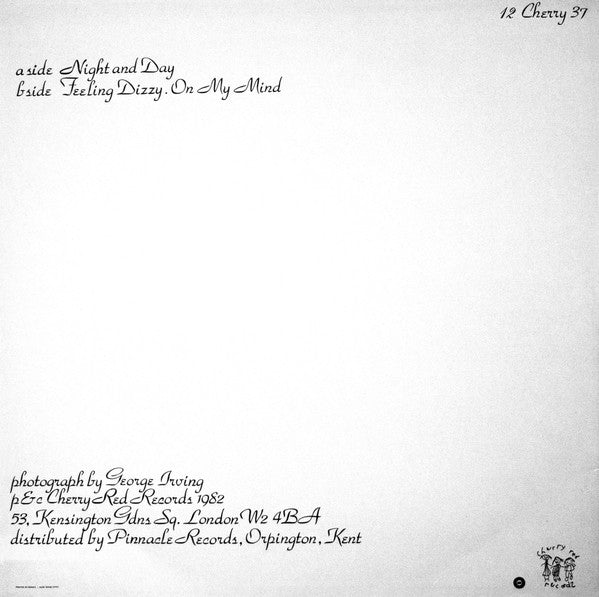 12 Cherry 37
a side Night and Day
b side Feeling Dizzy. On My Mind
photograph by George Irving
p & c Cherry Red Records 1982
53, Kensington Gdns Sq. London W2 4BA
distributed by Pinnacle Records, Orpington, Kent
cherry red
records